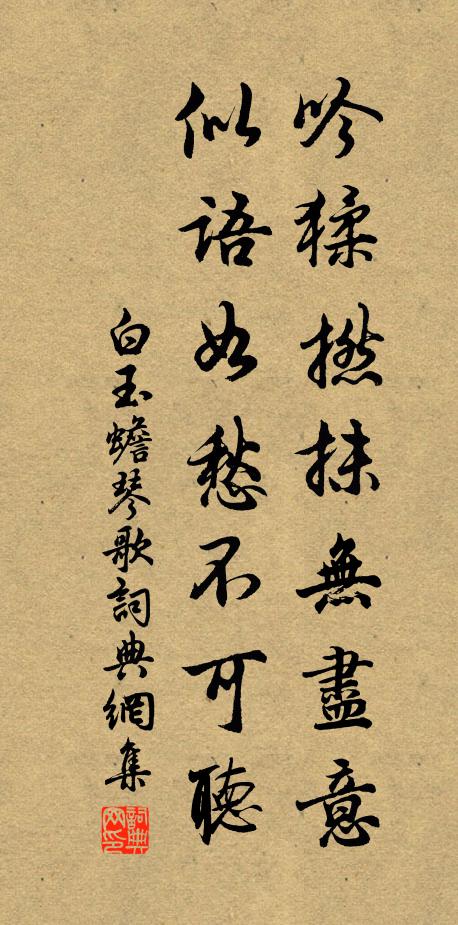 吟猱撚抹無盡意
似語如愁不可聽
白玉蟾琴歌詞典網集
詞典網印